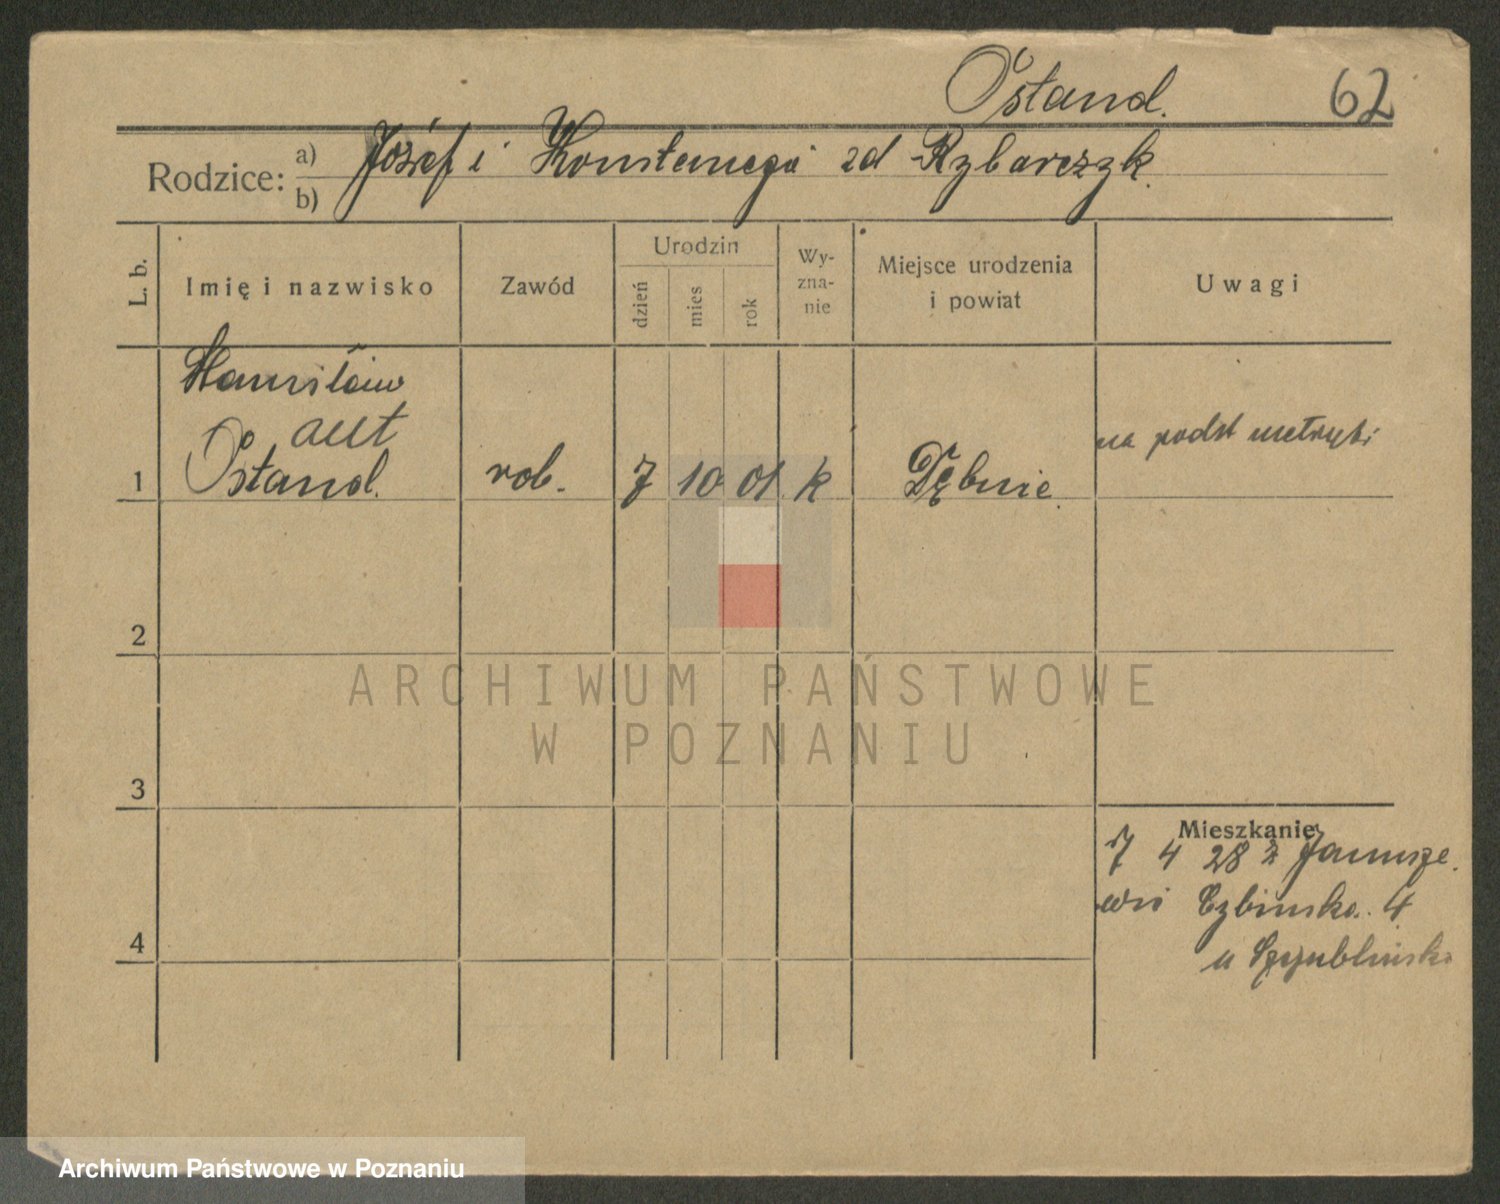 Ostand.
62
Rodzice: a) Józef i Konstancja zd Rybarczyk.
b)
L. b.
Imię i nazwisko
Zawód
Urodzin
dzień
mies
rok
Wy-
zna-
nie
Miejsce urodzenia
i powiat
Uwagi
Stanisław
aut
1 Ostand. rob. 7 10 01 k Dębnie.
na podst metryki
2
3
4
ARCHIWUM PAŃSTWOWE
W POZNANIU
Mieszkanie
7 4 28 z Janusze.
wic Cybinska. 4
u
Archiwum Państwowe w Poznaniu